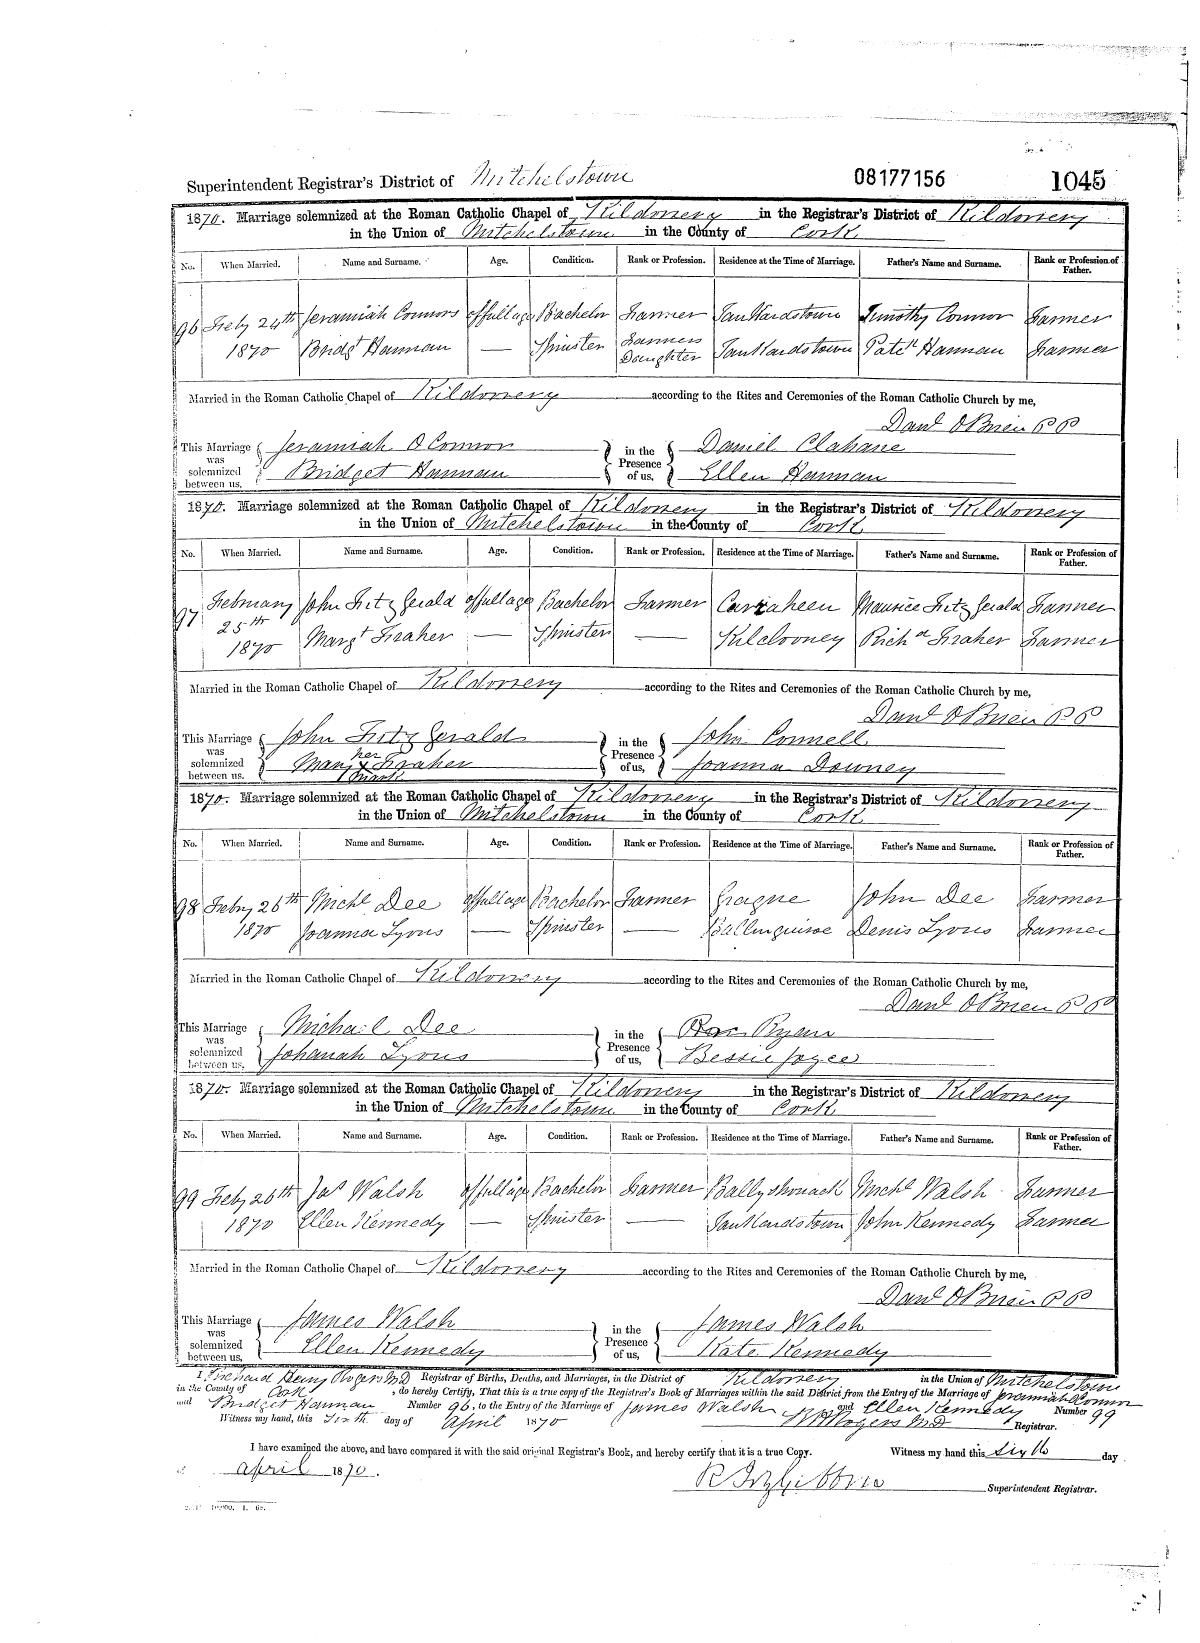 Superintendent Registrar's District of Mitchelstown 08177156 1045
1870. Marriage solemnized at the Roman Catholic Chapel of Kildorrery in the Registrar's District of Kildorrery
in the Union of Mitchelstown in the County of Cork
No. When Married. Name and Surname. Age. Condition. Rank or Profession. Residence at the Time of Marriage. Father's Name and Surname. Rank or Profession of Father.
96 Feby 24th Jeramiah Connors of full age Bachelor Farmer Tankardstown Timothy Connor Farmer
1870 Bridgt Hannan — Spinster Farmers Daughter Tankardstown Patck Hannan Farmer
Married in the Roman Catholic Chapel of Kildorrery according to the Rites and Ceremonies of the Roman Catholic Church by me,
Danl O'Brien P P
This Marriage was solemnized between us, Jeramiah O Connor in the Presence of us, Daniel Clahane
Bridget Hannan Ellen Hannan
1870. Marriage solemnized at the Roman Catholic Chapel of Kildorrery in the Registrar's District of Kildorrery
in the Union of Mitchelstown in the County of Cork
No. When Married. Name and Surname. Age. Condition. Rank or Profession. Residence at the Time of Marriage. Father's Name and Surname. Rank or Profession of Father.
97 February 25th John Fitz Gerald of full age Bachelor Farmer Carraheen Maurice Fitz Gerald Farmer
1870 Margt Fraher — Spinster — Kilclooney Richd Fraher Farmer
Married in the Roman Catholic Chapel of Kildorrery according to the Rites and Ceremonies of the Roman Catholic Church by me,
Danl O'Brien P P
This Marriage was solemnized between us, John Fitz Gerald in the Presence of us, John Connell
Mary her X mark Fraher Joanna Downey
1870. Marriage solemnized at the Roman Catholic Chapel of Kildorrery in the Registrar's District of Kildorrery
in the Union of Mitchelstown in the County of Cork
No. When Married. Name and Surname. Age. Condition. Rank or Profession. Residence at the Time of Marriage. Father's Name and Surname. Rank or Profession of Father.
98 Feby 26th Michl Dee of full age Bachelor Farmer Gragne John Dee Farmer
1870 Joanna Lyons — Spinster — Denis Lyons Farmer
Married in the Roman Catholic Chapel of Kildorrery according to the Rites and Ceremonies of the Roman Catholic Church by me,
Danl O'Brien P P
This Marriage was solemnized between us, Michael Dee in the Presence of us, Ryan
Johanah Lyons Bessie Joyce
1870. Marriage solemnized at the Roman Catholic Chapel of Kildorrery in the Registrar's District of Kildorrery
in the Union of Mitchelstown in the County of Cork
No. When Married. Name and Surname. Age. Condition. Rank or Profession. Residence at the Time of Marriage. Father's Name and Surname. Rank or Profession of Father.
99 Feby 26th Jas Walsh of full age Bachelor Farmer Ballyshonack Michl Walsh Farmer
1870 Ellen Kennedy — Spinster — Tankardstown John Kennedy Farmer
Married in the Roman Catholic Chapel of Kildorrery according to the Rites and Ceremonies of the Roman Catholic Church by me,
Danl O'Brien P P
This Marriage was solemnized between us, James Walsh in the Presence of us, James Walsh
Ellen Kennedy Kate Kennedy
I, Richard Henry Rogers MD Registrar of Births, Deaths, and Marriages, in the District of Kildorrery in the Union of Mitchelstown
in the County of Cork, do hereby Certify, That this is a true copy of the Registrar's Book of Marriages within the said District from the Entry of the Marriage of Jeramiah Connor
and Bridget Hannan Number 96, to the Entry of the Marriage of James Walsh and Ellen Kennedy Number 99
Witness my hand, this Sixth day of April 1870 RH Rogers MD Registrar.
I have examined the above, and have compared it with the said original Registrar's Book, and hereby certify that it is a true Copy. Witness my hand this sixth day
April 1870. R Fitzgibbon Superintendent Registrar.